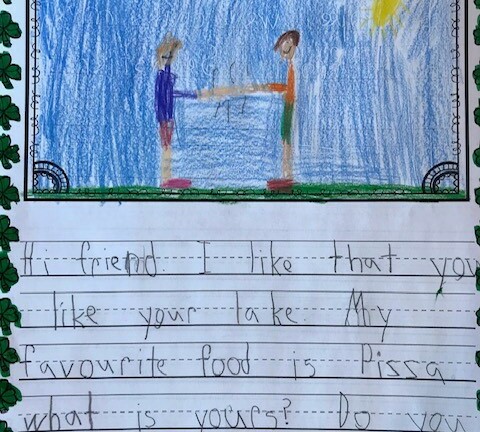 Hi friend. I like that you
like your lake. My
favourite food is Pissa
what is yours? Do you